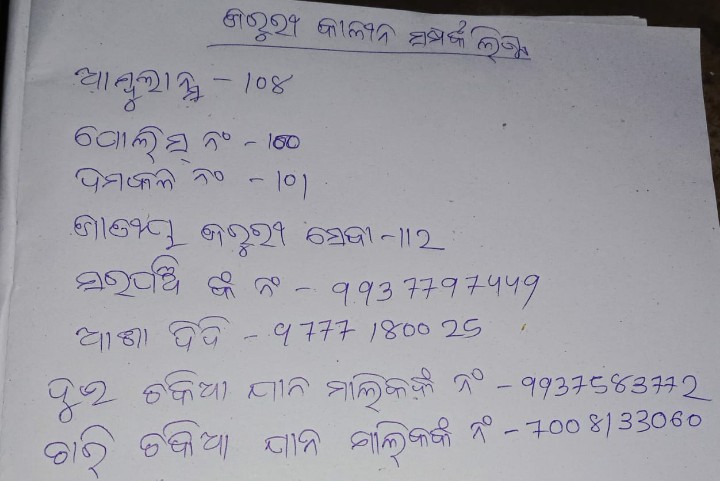 ଜରୁରୀ କାଳୀନ ସମ୍ପର୍କ ଲିଷ୍ଟ
ଆମ୍ବୁଲାନ୍ସ - ୧୦୪
ପୋଲିସ୍ ନଂ - 100
ଦମକଳ ନଂ - 101
ଜାତୀୟ ଜରୁରୀ ସେବା - 112
ସରପଞ୍ଚ ଙ୍କ ନଂ - 9937797449
ଆଶା ଦିଦି - 9777180025
ଦୁଇ ଚକିଆ ଯାନ ମାଲିକଙ୍କ ନଂ - 9937583772
ଚାରି ଚକିଆ ଯାନ ମାଲିକଙ୍କ ନଂ - 7008133060